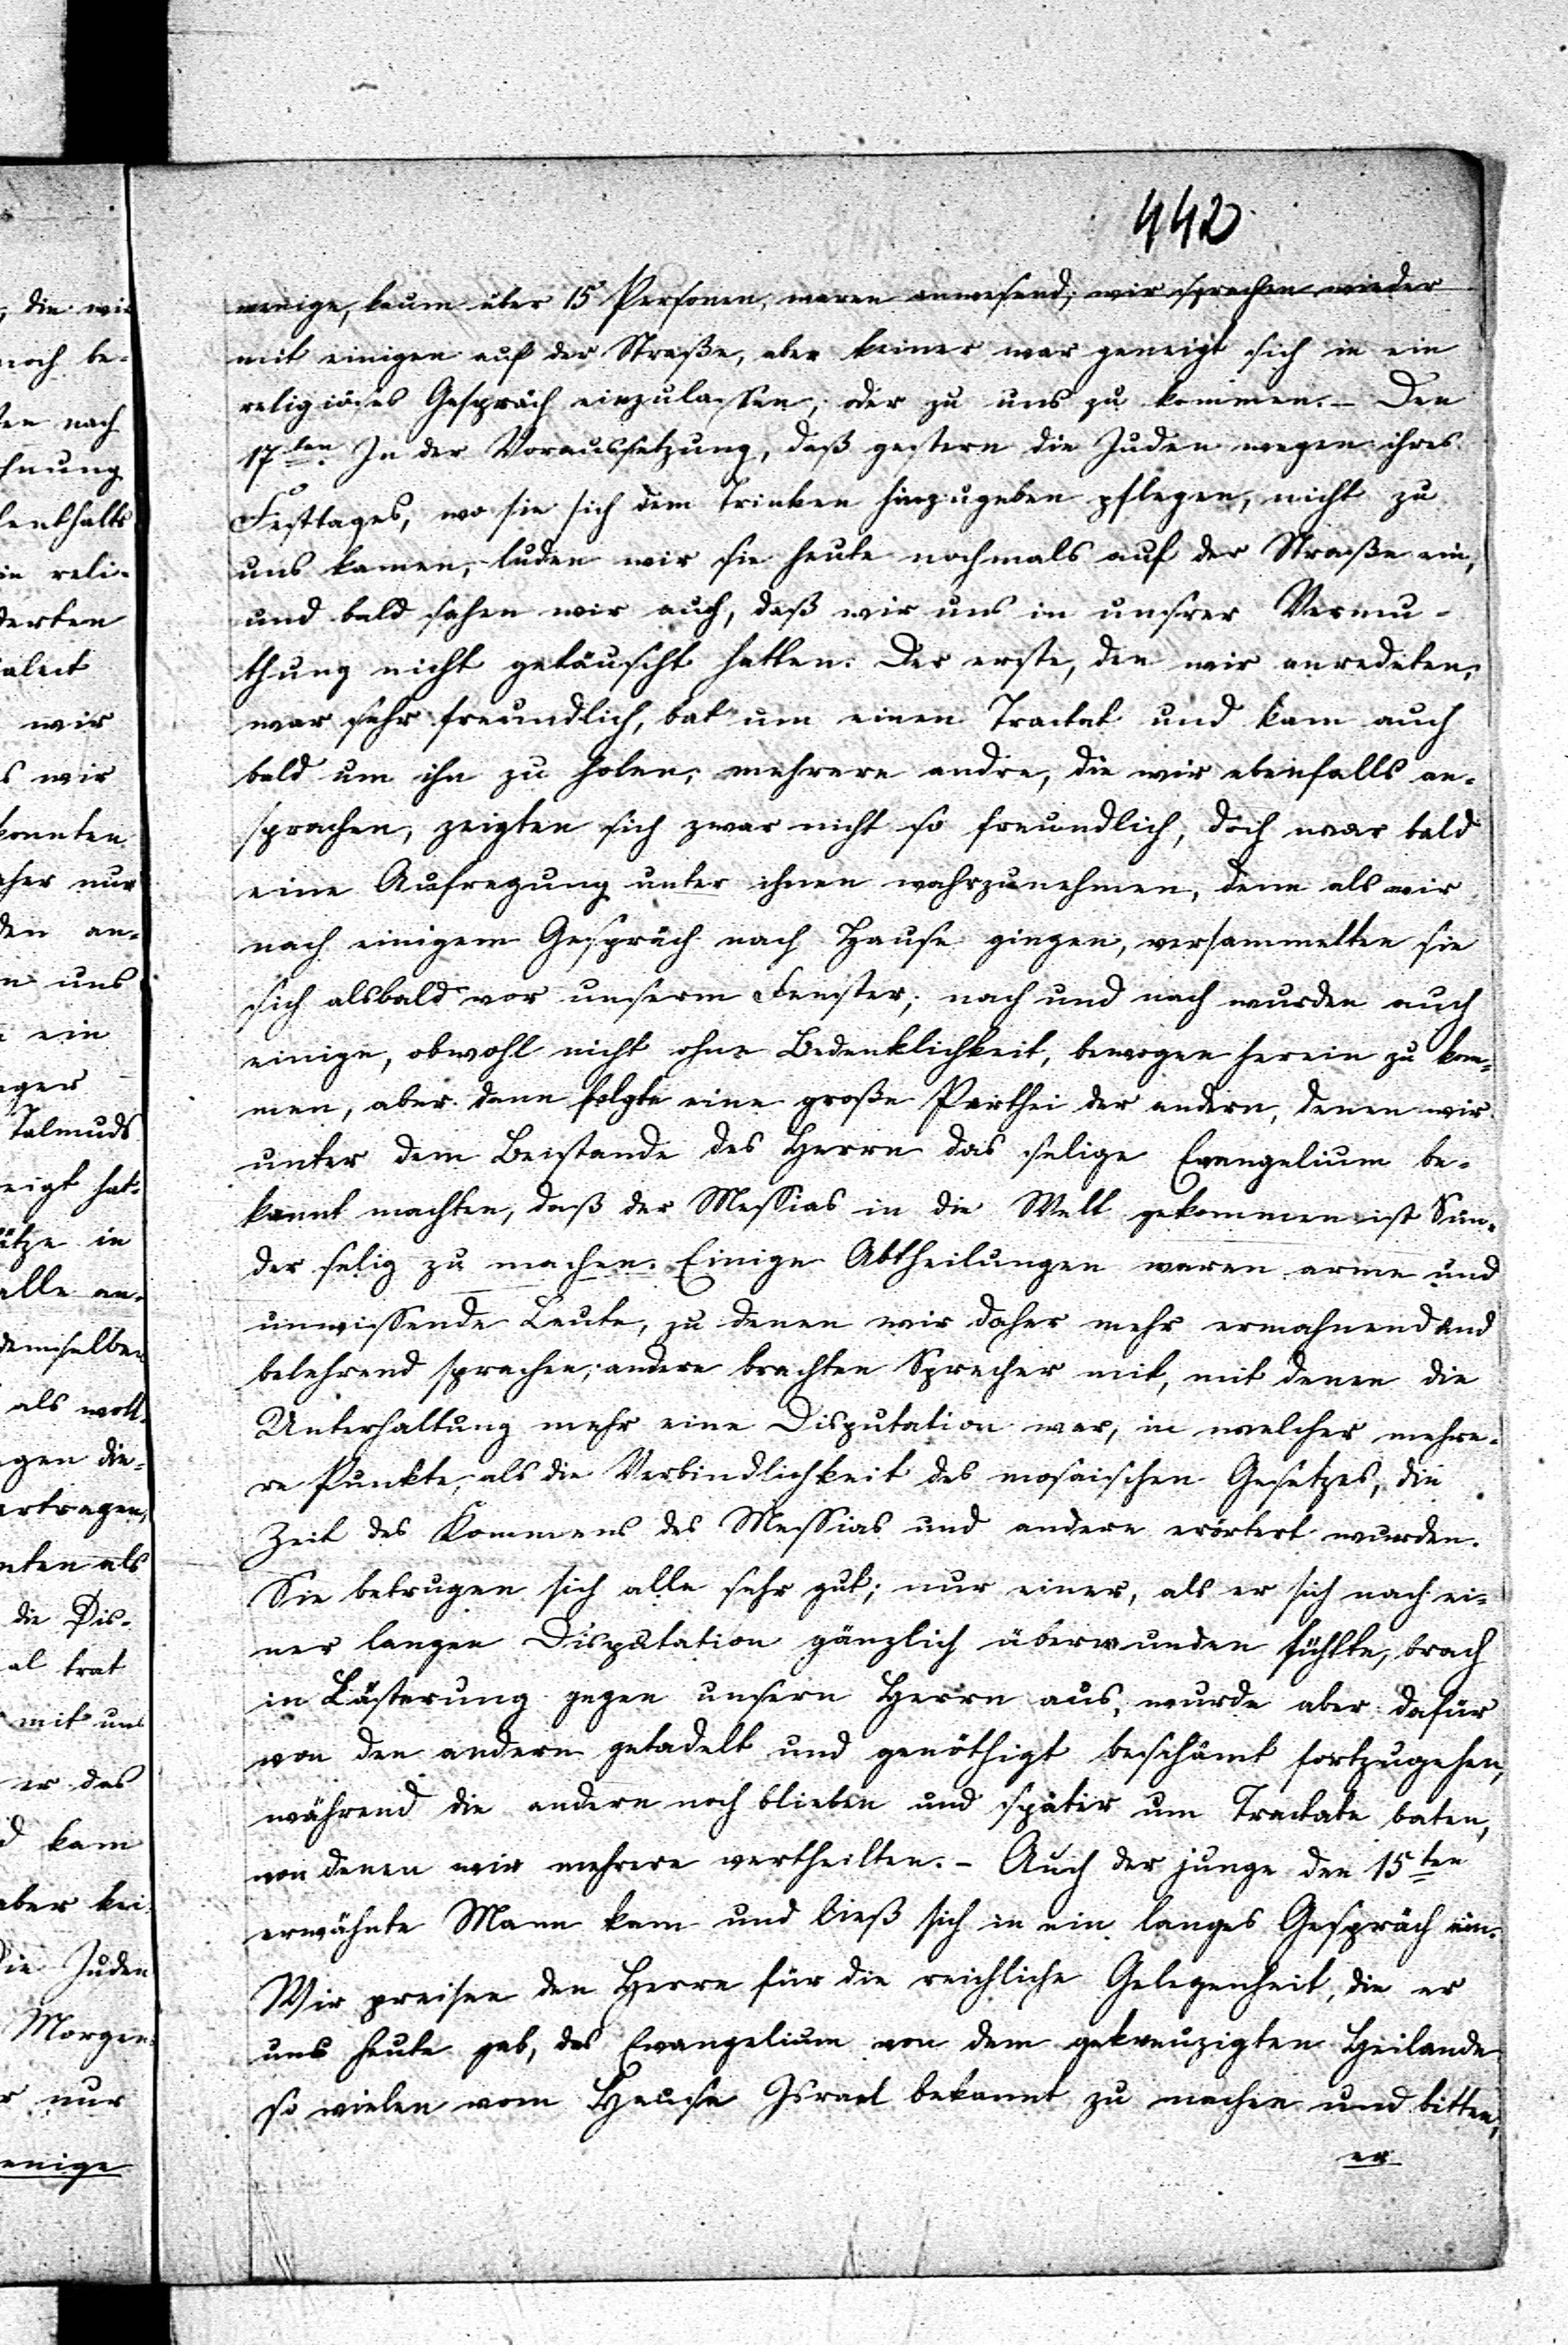 442
, die wir
noch be-
ten nach
hnung
fenthalts
in reli-
derten
ialect
wir
s wir
konnten
aher nur
den an-
n uns
ein
eger
Talmuds
eigt hat-
ätze in
alle an-
demselben
als woll-
gen die-
ertragen,
nten als
die Dis-
al trat
mit uns
er das
d kam
aber kei-
die Juden
Morgen-
r nur
enige
wenige, kaum über 15 Personen, waren anwesend; wir sprachen wieder
mit einigen auf der Straße, aber keiner war geneigt sich in ein
religiöses Gespräch einzulassen, oder zu uns zu kommen. – Den
17ten. In der Voraussetzung, daß gestern die Juden wegen ihres
Festtages, wo sie sich dem Trinken hinzugeben pflegen, nicht zu
uns kamen, luden wir sie heute nochmals auf der Straße ein,
und bald sahen wir auch, daß wir uns in unsrer Vermu-
thung nicht getäuscht hatten. Der erste, den wir anredeten,
war sehr freundlich, bat um einen Tractat und kam auch
bald um ihn zu holen; mehrere andre, die wir ebenfalls an-
sprachen, zeigten sich zwar nicht so freundlich, doch war bald
eine Aufregung unter ihnen wahrzunehmen, denn als wir
nach einigem Gespräch nach Hause gingen, versammelten sie
sich alsbald vor unserm Fenster; nach und nach wurden auch
einige, obwohl nicht ohne Bedenklichkeit, bewogen herein zu kom-
men, aber dann folgte eine große Parthei der andern, denen wir
unter dem Beistande des Herrn das selige Evangelium be-
kannt machten, daß der Messias in die Welt gekommen ist Sün-
der selig zu machen. Einige Abtheilungen waren arme und
unwissende Leute, zu denen wir daher mehr ermahnend und
belehrend sprachen; andere brachten Sprecher mit, mit denen die
Unterhaltung mehr eine Disputation war, in welcher mehre-
re Punkte, als die Verbindlichkeit des mosaischen Gesetzes, die
Zeit des Kommens des Messias und andere erörtert wurden.
Sie betrugen sich alle sehr gut; nur einer, als er sich nach ei-
ner langen Disputation gänzlich überwunden fühlte, brach
in Lästerung gegen unsern Herrn aus, wurde aber dafür
von den andern getadelt und genöthigt beschämt fortzugehen,
während die andern noch blieben und später um Tractate baten,
von denen wir mehrere vertheilten. – Auch der junge den 15ten
erwähnte Mann kam und ließ sich in ein langes Gespräch ein.
Wir preisen den Herrn für die reichliche Gelegenheit, die er
uns heute gab, das Evangelium von dem gekreuzigten Heilande
so vielen vom Hause Israel bekannt zu machen und bitten,
er